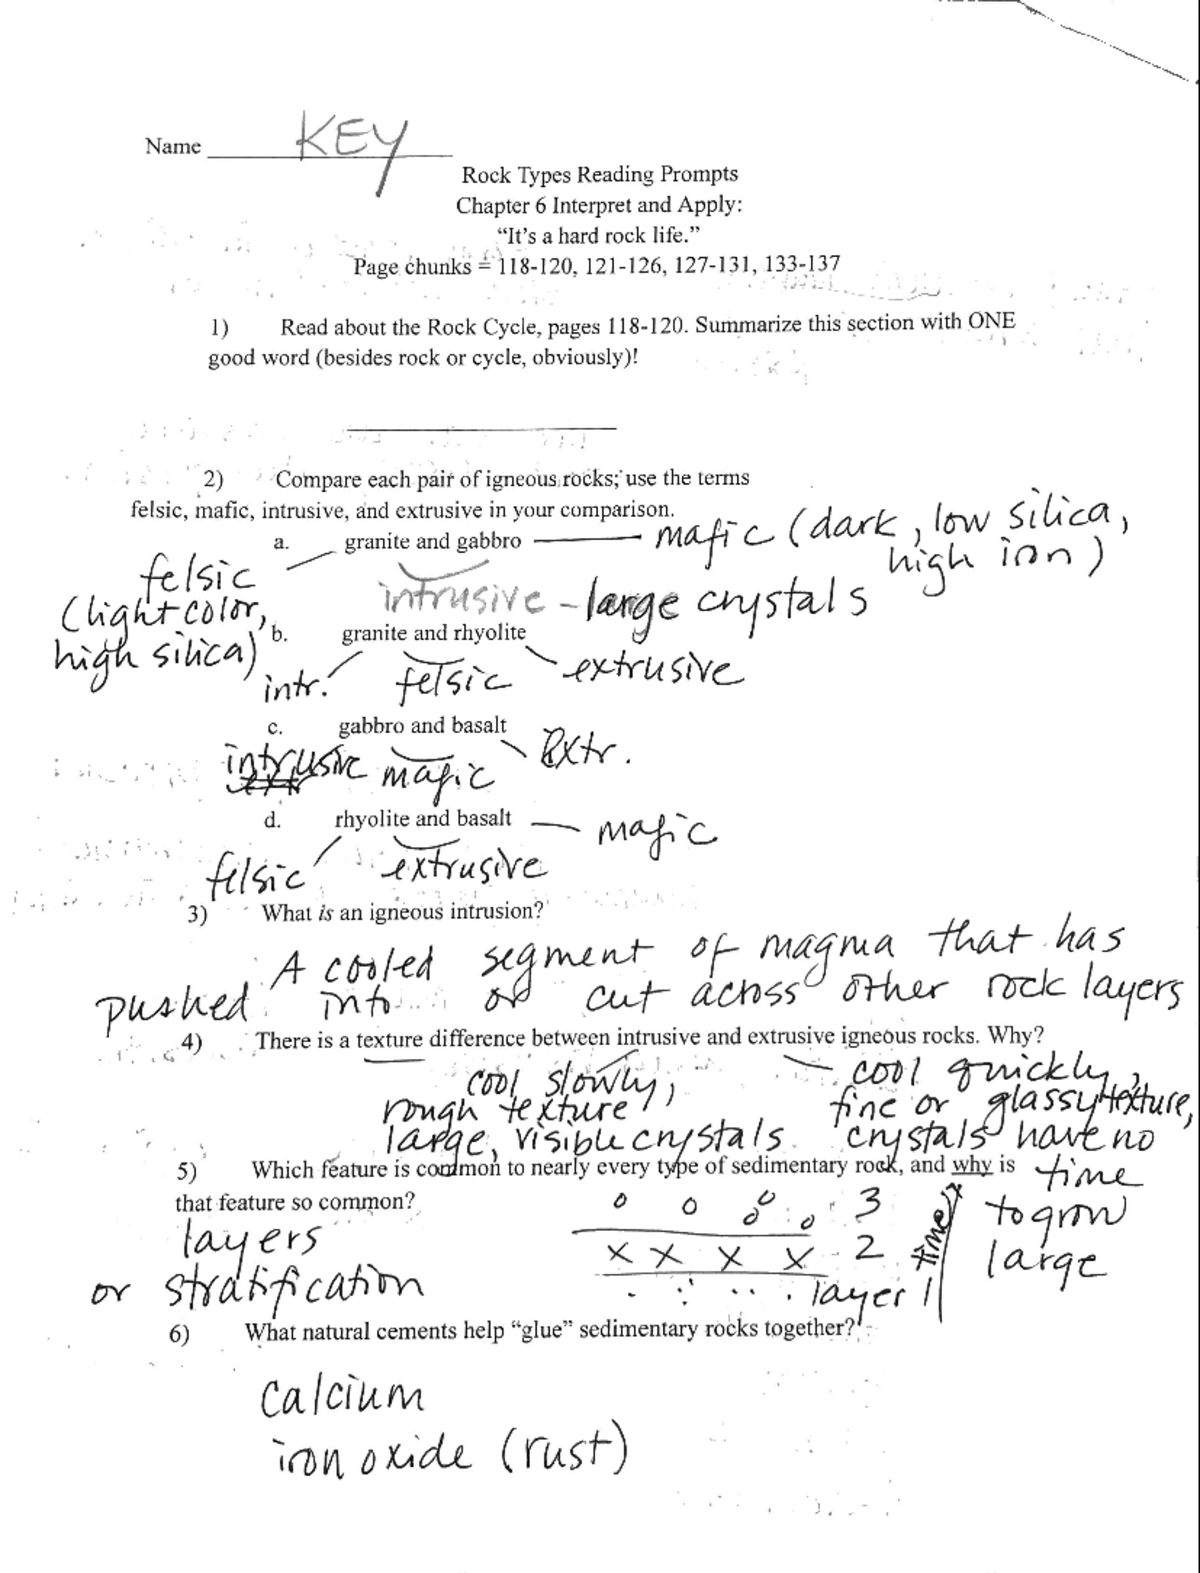 Name KEY
Rock Types Reading Prompts
Chapter 6 Interpret and Apply:
“It’s a hard rock life.”
Page chunks = 118-120, 121-126, 127-131, 133-137
1) Read about the Rock Cycle, pages 118-120. Summarize this section with ONE
good word (besides rock or cycle, obviously)!
2) Compare each pair of igneous rocks; use the terms
felsic, mafic, intrusive, and extrusive in your comparison.
a. granite and gabbro
mafic (dark, low silica,
high iron)
felsic
(light color,
high silica)
intrusive - large crystals
b. granite and rhyolite
intr. felsic extrusive
c. gabbro and basalt
intrusive mafic Extr.
extr
d. rhyolite and basalt mafic
felsic extrusive
3) What is an igneous intrusion?
A cooled segment of magma that has
pushed into or cut across other rock layers
4) There is a texture difference between intrusive and extrusive igneous rocks. Why?
cool slowly,
rough texture
large, visible crystals
cool quickly,
fine or glassy texture,
crystals have no
time
to grow
large
5) Which feature is common to nearly every type of sedimentary rock, and why is
that feature so common?
layers
or stratification
o o o o o 3
x x x x 2
layer 1
time
6) What natural cements help “glue” sedimentary rocks together?
calcium
iron oxide (rust)